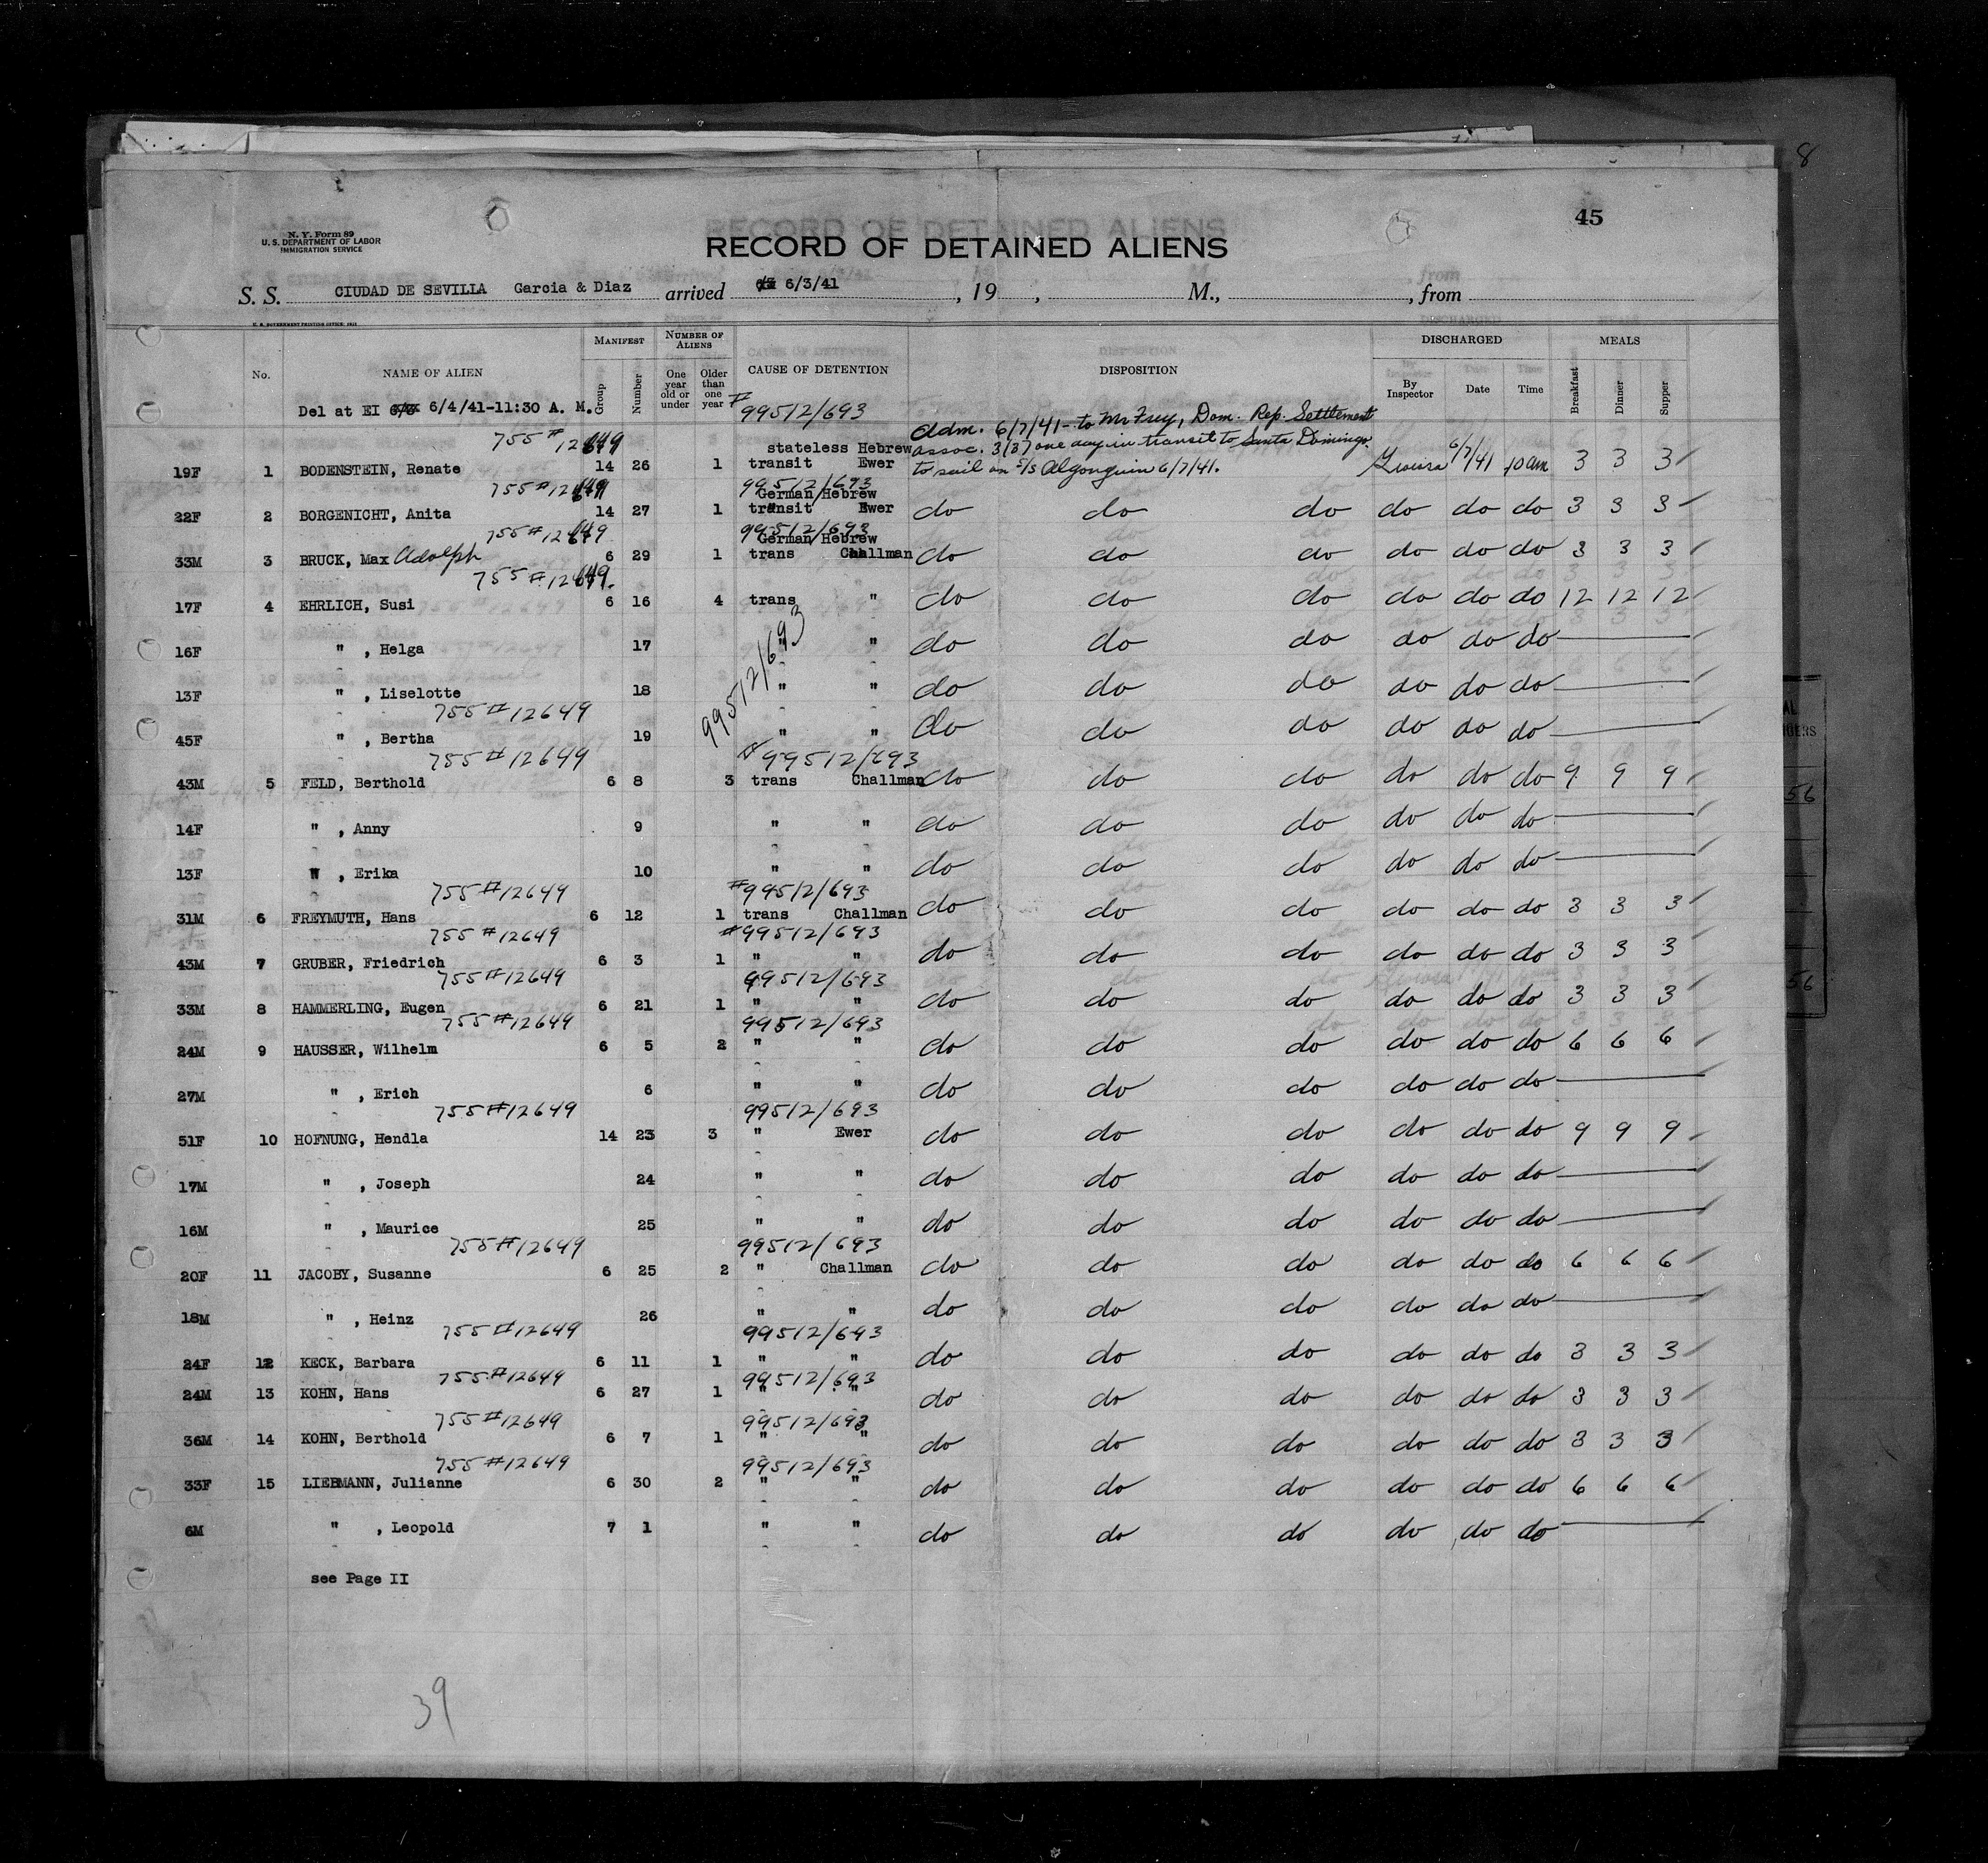 8
45
N. Y. Form 89
U. S. DEPARTMENT OF LABOR
IMMIGRATION SERVICE
RECORD OF DETAINED ALIENS
S. S. CIUDAD DE SEVILLA Garcia & Diaz arrived 6/3/41 , 19 , M., , from
U. S. GOVERNMENT PRINTING OFFICE
No. NAME OF ALIEN MANIFEST NUMBER OF ALIENS CAUSE OF DETENTION DISPOSITION DISCHARGED MEALS
Group Number One year old or under Older than one year By Inspector Date Time Breakfast Dinner Supper
Del at EI 6/4/41-11:30 A. M. # 99512/693
Adm. 6/7/41 - to Mr Frey, Dom. Rep. Settlement
755 # 12649 stateless Hebrew assoc. 3(3) one day in transit to Santo Domingo
19F 1 BODENSTEIN, Renate 14 26 1 transit Ewer to sail on S/S Algonquin 6/7/41. 6/7/41 10 am 3 3 3
755 # 12649 99512/693
German Hebrew
22F 2 BORGENICHT, Anita 14 27 1 transit Ewer do do do do do do 3 3 3
755 # 12649 99512/693
German Hebrew
33M 3 BRUCK, Max Adolph 6 29 1 trans Challman do do do do do do 3 3 3
755 # 12649.
17F 4 EHRLICH, Susi 6 16 4 trans " do do do do do do 12 12 12
99512/693
16F " , Helga 17 " " do do do do do do
13F " , Liselotte 18 " " do do do do do do
755 # 12649
45F " , Bertha 19 " " do do do do do do
755 # 12649 # 99512/693
43M 5 FELD, Berthold 6 8 3 trans Challman do do do do do do 9 9 9
14F " , Anny 9 " " do do do do do do
13F " , Erika 10 " " do do do do do do
755 # 12649 # 99512/693
31M 6 FREYMUTH, Hans 6 12 1 trans Challman do do do do do do 3 3 3
755 # 12649 # 99512/693
43M 7 GRUBER, Friedrich 6 3 1 " " do do do do do do 3 3 3
755 # 12649 99512/693
33M 8 HAMMERLING, Eugen 6 21 1 " " do do do do do do 3 3 3
755 # 12649 99512/693
24M 9 HAUSSER, Wilhelm 6 5 2 " " do do do do do do 6 6 6
27M " , Erich 6 " " do do do do do do
755 # 12649 99512/693
51F 10 HOFNUNG, Hendla 14 23 3 " Ewer do do do do do do 9 9 9
17M " , Joseph 24 " " do do do do do do
16M " , Maurice 25 " " do do do do do do
755 # 12649 99512/693
20F 11 JACOBY, Susanne 6 25 2 " Challman do do do do do do 6 6 6
18M " , Heinz 26 " " do do do do do do
755 # 12649 99512/693
24F 12 KECK, Barbara 6 11 1 " " do do do do do do 3 3 3
755 # 12649 99512/693
24M 13 KOHN, Hans 6 27 1 " " do do do do do do 3 3 3
755 # 12649 99512/693
36M 14 KOHN, Berthold 6 7 1 " " do do do do do do 3 3 3
755 # 12649 99512/693
33F 15 LIEBMANN, Julianne 6 30 2 " " do do do do do do 6 6 6
6M " , Leopold 7 1 " " do do do do do do
see Page II
39
56
56